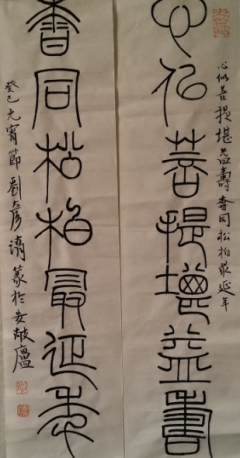 心似菩提堪益壽春同松柏最延年
心似菩提堪益壽
春同松柏最延年
癸巳元宵節劉彥篆於廬